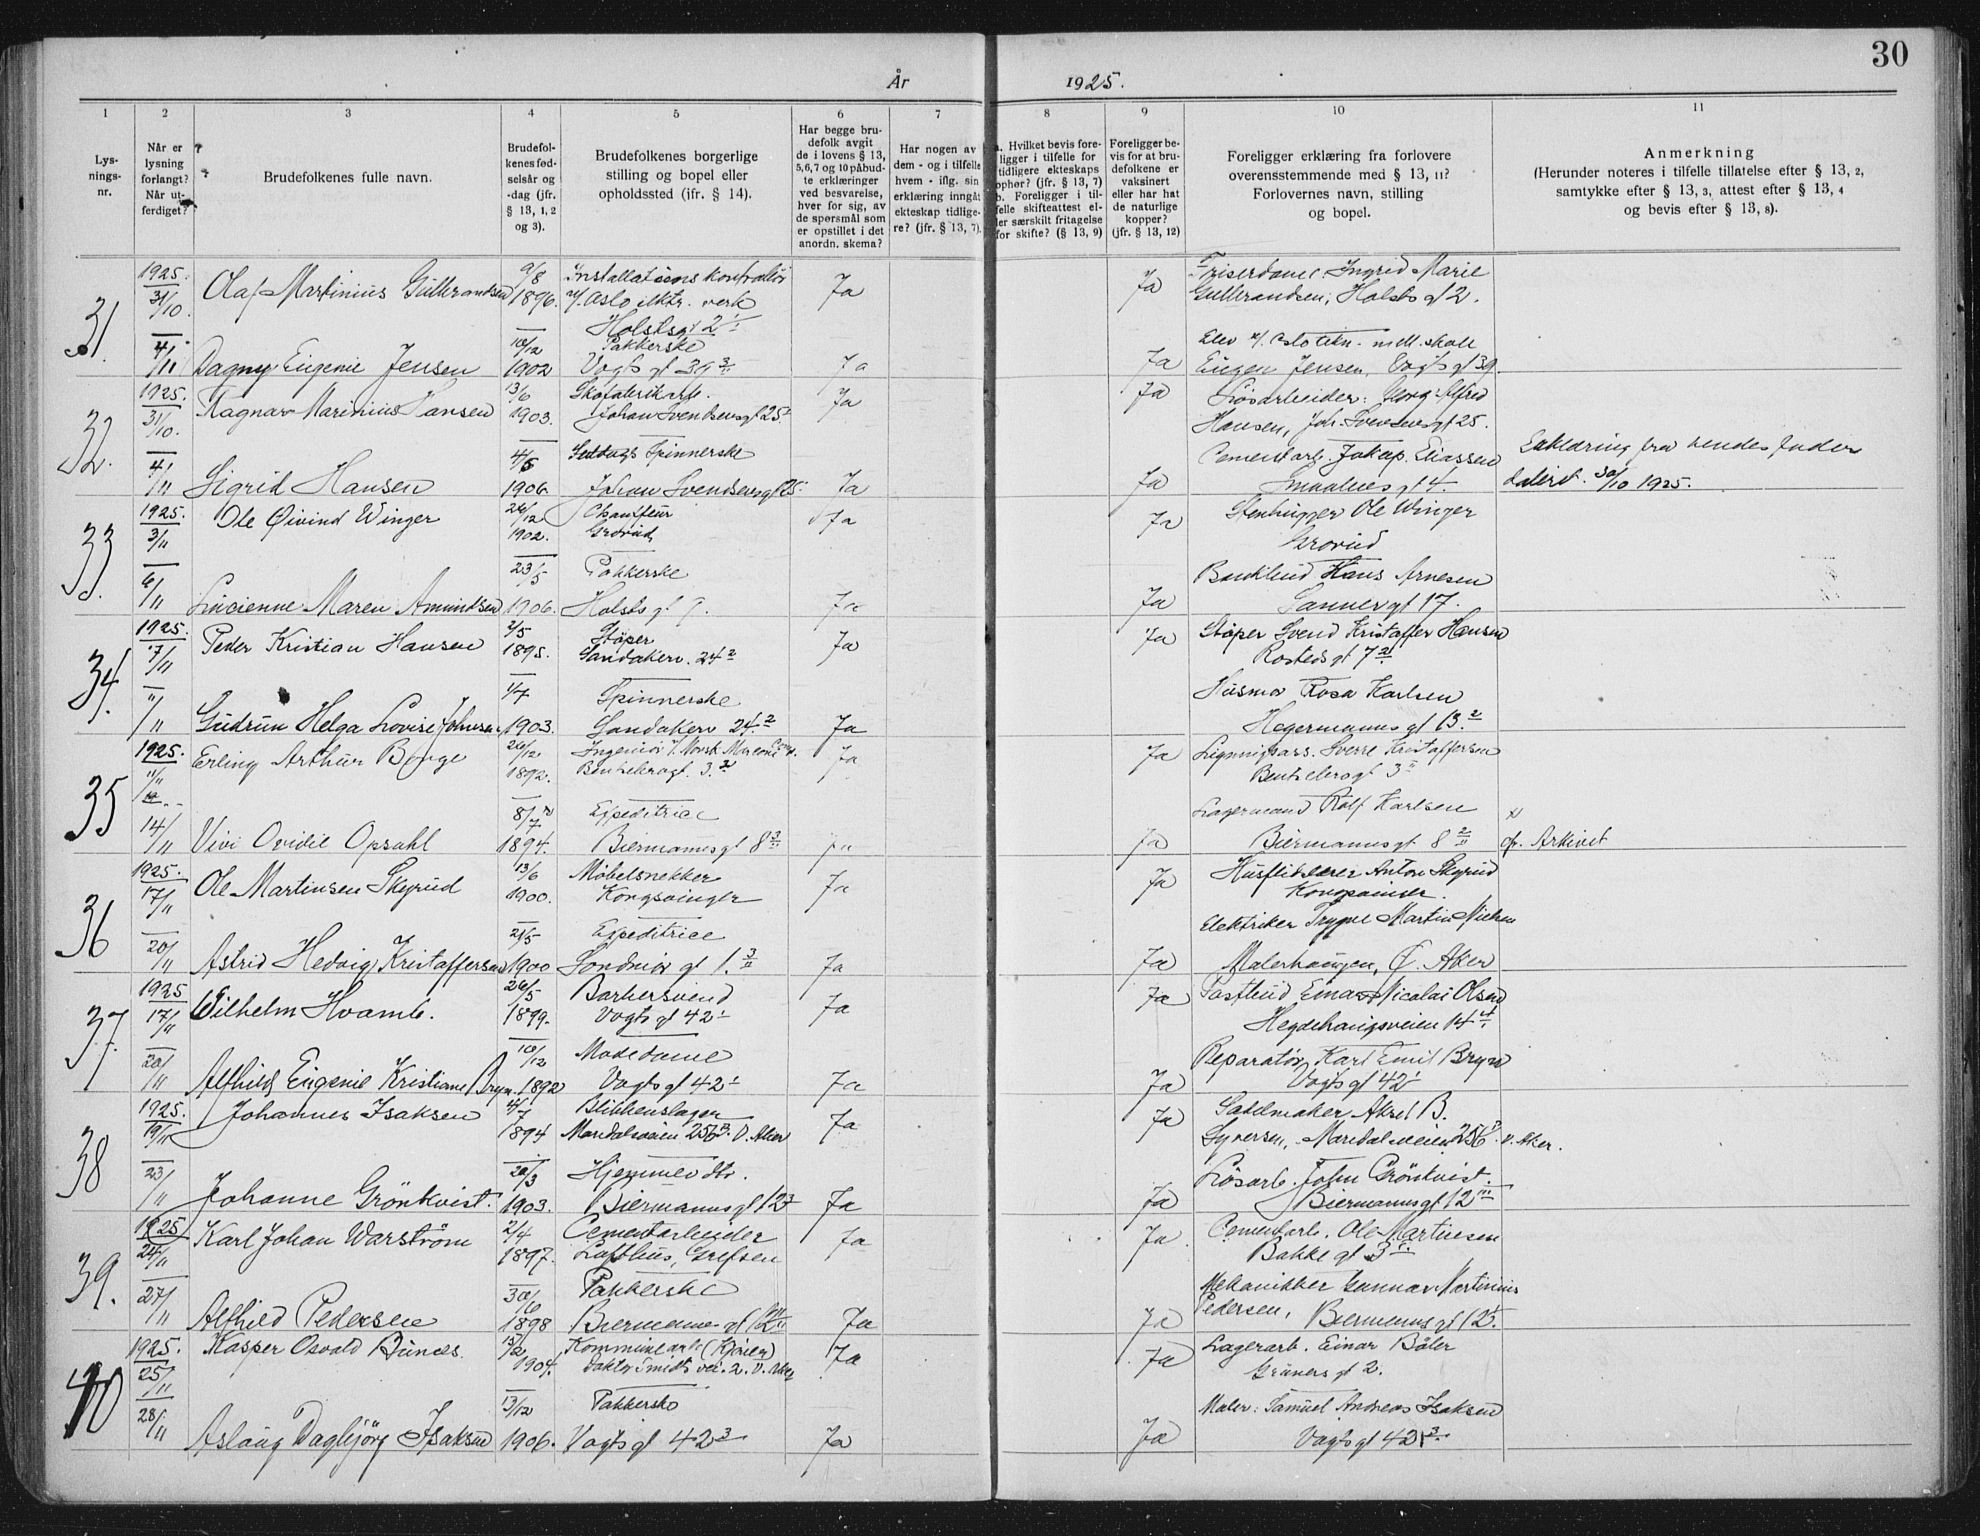 30
År 1925.
1 2 3 4 5 6 7 8 9 10 11
Lys-
nings-
nr.
Når er
lysning
forlangt?
Når ut-
ferdiget?
Brudefolkenes fulle navn.
Brudefol-
kenes fød-
selsår og
-dag (jfr.
§ 13, 1, 2
og 3).
Brudefolkenes borgerlige
stilling og bopel eller
opholdssted (jfr. § 14).
Har begge bru-
defolk avgit
de i lovens § 13,
5,6,7 og 10 påbud-
te erklæringer
ved besvarelse,
hver for sig, av
de spørsmål som
er opstillet i det
anordn. skema?
Har nogen av
dem - og i tilfelle
hvem - iflg. sin
erklæring inngåt
ekteskap tidlige-
re? (jfr. § 13, 7).
a. Hvilket bevis fore-
ligger i tilfelle for
tidligere ekteskaps
ophør? (jfr. § 13, 7)
b. Foreligger i til-
felle skifteattest el-
ler særskilt fritagelse
for skifte? (§ 13, 9)
Foreligger be-
vis for at bru-
defolkene er
vaksinert
eller har hat
de naturlige
kopper?
(jfr. § 13, 12)
Foreligger erklæring fra forlovere
overensstemmende med § 13, 11?
Forlovernes navn, stilling
og bopel.
Anmerkning
(Herunder noteres i tilfelle tillatelse efter § 13, 2,
samtykke efter § 13, 3, attest efter § 13, 4
og bevis efter § 13, 8).
31.
1925. 31/10. Olaf Martinius Gulbrandsen 9/8 1896. Installationskontrollør
v/ Oslo elktr. verk
Holstsgt 2 Ja Ja Friserdame Ingrid Marie
Gulbrandsen, Holsts gt 2.
4/11 Dagny Eugenie Jensen 10/12 1902 Pakkerske
Vogts gt 39 Ja Ja Elev v/ Oslo tekn. mell. skole
Eugen Jensen, Vogts gt 39.
32.
1925. 31/10. Ragnar Marinius Hansen 13/6 1903. Skofabrikarb.
Johan Svendsensgt 25 Ja Ja Løsarbeider: Georg Alfred
Hansen, Joh. Svensensgt 25.
4/11 Sigrid Hansen 1906 Spinnerske
Johan Svendsensgt 25 Ja Ja Cementarb. Jakop Eliassen
Smaalens gt 4. Erklæring fra hendes fader
datert 30/10 1925.
33.
1925. 3/11 Ole Øivind Winger 26/12 1902. Chauffeur
Grorud Ja Ja Stenhugger Ole Winger
Grorud
6/11 Lucienne Maren Amundsen 23/5 1906. Pakkerske
Holsts gt 7. Ja Ja Bankbud Hans Arnesen
Sannergt 17.
34.
1925. 7/11 Peder Kristian Hansen 2/5 1895. Støper
Sandakerv. 24 2 Ja Ja Støper Svend Kristoffer Hansen
Rosteds gt 7 2
11/11 Gudrun Helga Lovise Johnsen 1/7 1903. Spinnerske
Sandakerv 24. 2 Ja Husmor Rosa Karlsen
Hegermanns gt 13. 2
35
1925. 11/11 Erling Arthur Borge 26/12 1892. Ingeniør v. Norsk Marconi Comp.
Bentsebrogt. 3. Ja Ja Ligningsass. Sverre Kristoffersen
Bentsebrogt 3 II
14/11 Vivi Ovidie Opsahl 8/7 x) 1894. Expeditrice
Biermannsgt 8 Ja Ja Lagermand Rolf Karlsen
Biermannsgt 8 x)
cfr. Arkivet
36
1925. 17/11 Ole Martinsen Skyrud 13/6 1900. Møbelsnekker
Kongsvinger Ja Ja Husflidslærer Anton Skyrud
Kongsvinger.
20/11 Astrid Hedvig Kristoffersen 21/5 1900 Expeditrice
Søndmør gt 1. Ja Ja Elektriker Trygve Martin Nielsen
Malerhaugen, Ø. Aker
37.
1925 17/11 Vilhelm Hvamb. 26/5 1899. Barbersvend
Vogts gt 42 Ja Ja Postbud Einar Nicolai Olsen
Hegdehaugsveien 14
20/11 Alfhild Eugenie Kristiane Bryn 10/12 1892 Modedame
Vogts gt 42 Ja Ja Reparatør Karl Emil Bryn
Vogts gt 42
38
1925. 19/11 Johannes Isaksen 4/7 1894 Blikkenslager
Maridalsveien 256 V. Aker Ja Ja Sadelmaker Aksel B.
Syversen, Maridalsveien 256 V. Aker.
23/11 Johanne Grönkvist 20/3 1903. Hjemmev. dtr.
Biermannsgt 12 Ja Ja Løsarb. John Grönkvist.
Biermannsgt 12 III
39.
1925 24/11 Karl Johan Warström 2/4 1897. Cementarbeider
Lofthus, Grefsen Ja Ja Cementarb. Ole Martinsen
Bakke gt 3
27/11 Alfhild Pedersen 30/6 1898 Pakkerske
Biermanns gt 12 Ja Ja Mekanikker Gunnar Martinius
Pedersen, Biermannsgt 12.
40
1925. 25/11 Kasper Osvald Bunæs. 15/2 1904. Kommunearb. (Kjører)
Doktor Smidts vei. 2. V. Aker Ja Ja Lagerarb. Einar Bøler
Grüners gt 2.
28/11 Aslaug Dagbjörg Isaksen 13/12 1906. Pakkerske
Vogts gt 42 3 Ja Ja Maler: Samuel Andreas Isaksen
Vogts gt 42 3.